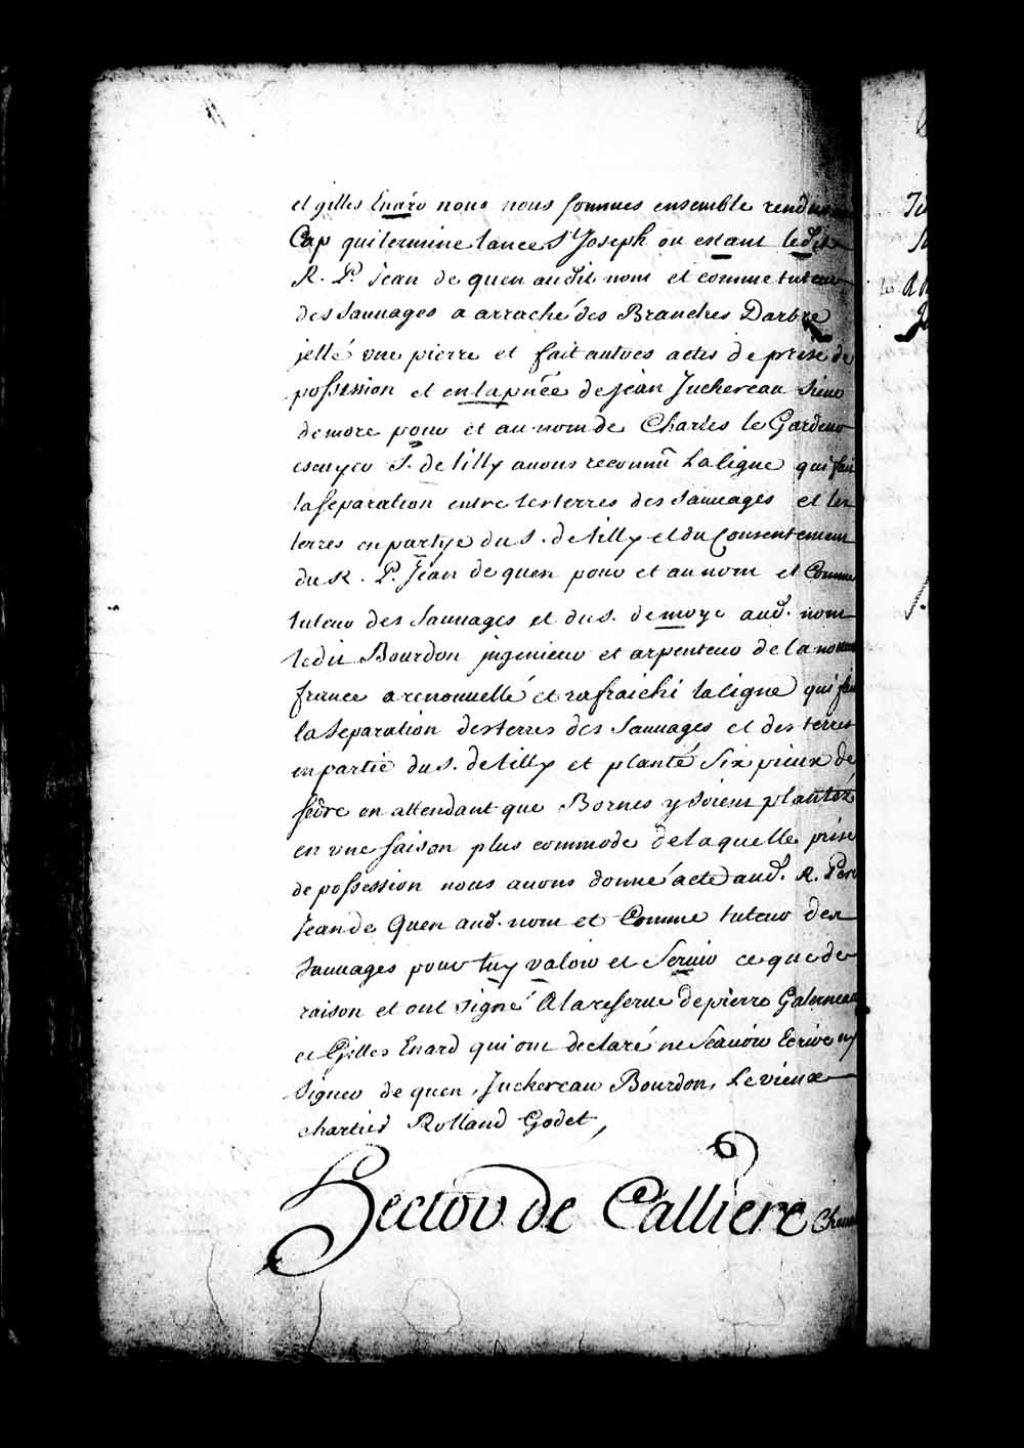 et gilles Enard nous nous sommes ensemble rendus
Cap qui termine lance St Joseph ou estant ledit
R. P. Jean de quen audit nom et comme tuteur
des sauuages a arraché des Branches Darbre
jetté vne pierre et fait autres actes de prise de
possession et en la pñce de jean Juchereau sieur
demore pour et au nom de Charles le Gardeur
escuyer S. de tilly auons reconnu La ligne qui fait
la separation entre les terres des sauuages et les
terres en partye du S. de tilly et du Consentement
du R. P. Jean de quen pour et au nom et Comme
tuteur des sauuages et du s. demoye aud. nom
ledit Bourdon ingenieur et arpenteur de la nouue
france a renouuellé et rafraichi la ligne qui fait
la separation des terres des sauuages et des terres
en partie du s. de tilly et planté six pieux de
sedre en attendant que Bornes y soient plantéz
en vne saison plus commode de laquelle prise
de possession nous auons donné acte aud. R. Pere
Jean de Quen aud. nom et Comme tuteur des
sauuages pour luy valoir et seruir ce que de
raison et ont signé A la reserue de pierre Galerneau
et Gilles Enard qui ont declaré ne scauoir Ecrire ny
signer de quen, Juchereau Bourdon, Le vieux
chartier Rolland Godet,
Hector de Calliere